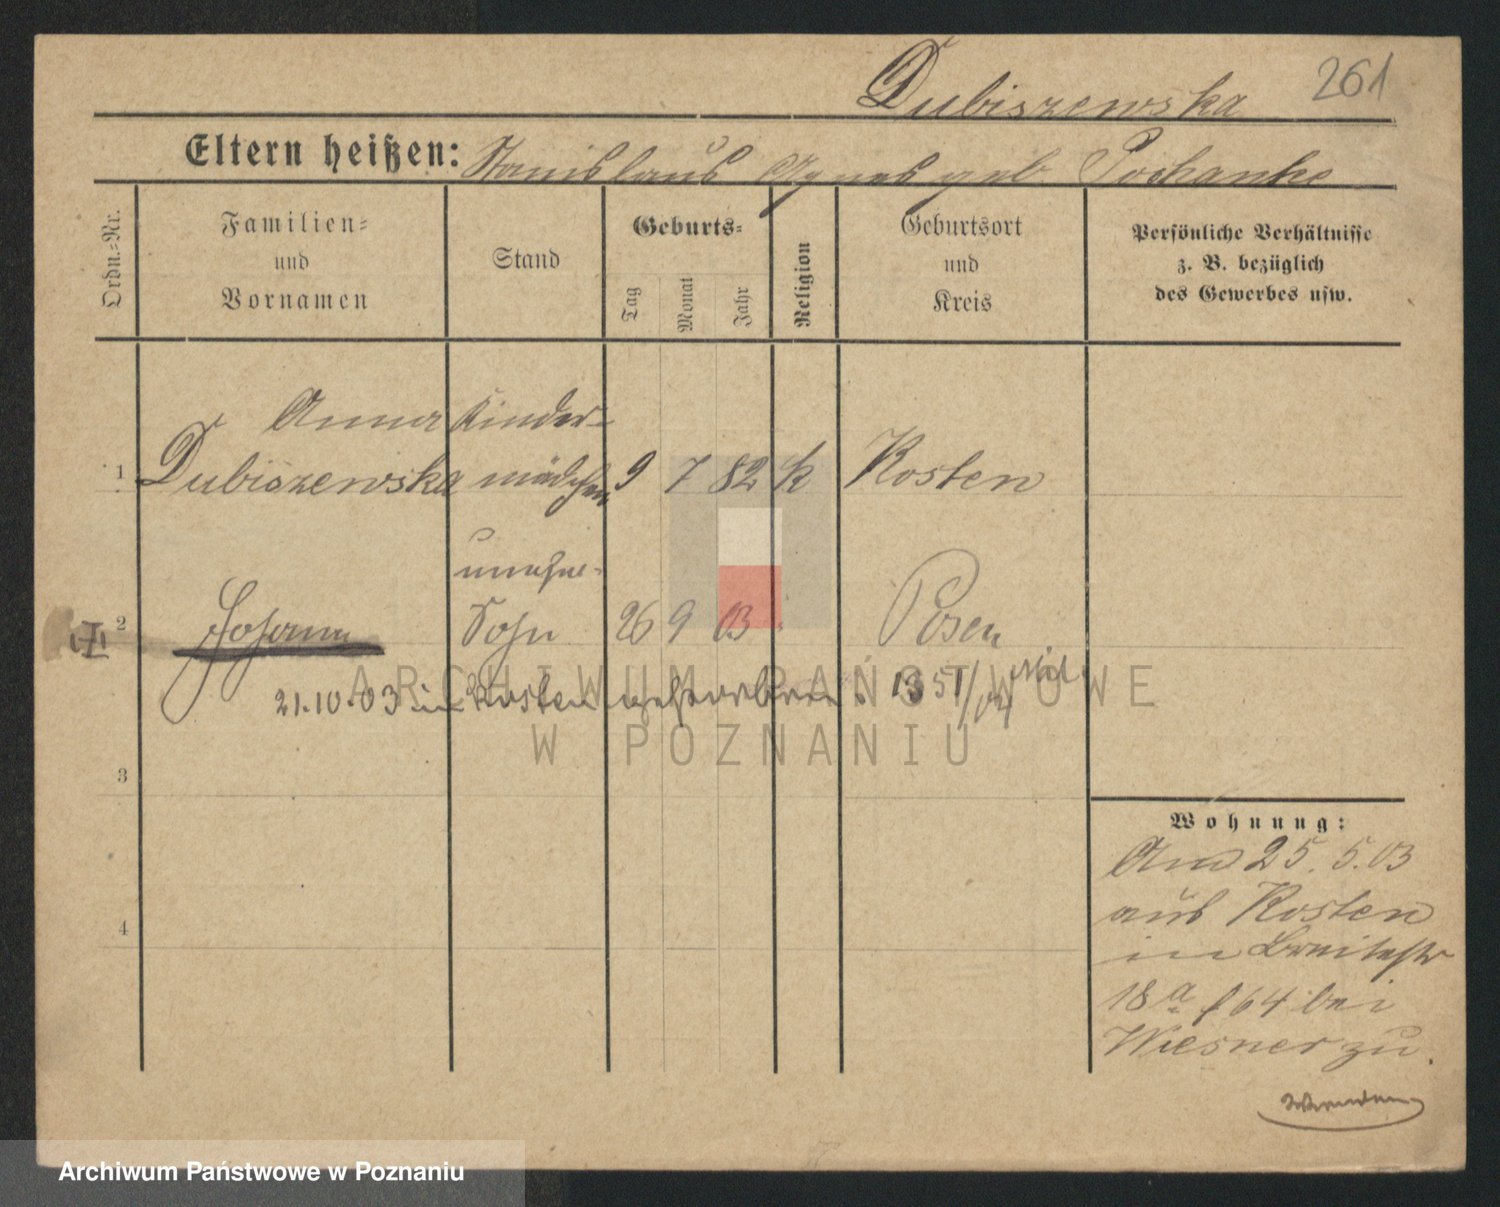 Dubiszewska 261
Eltern heißen: Stanislaus Agnes geb.
Ordn.=Nr.
Familien=
und
Vornamen
Stand
Geburts=
Tag
Monat
Jahr
Religion
Geburtsort
und
Kreis
Persönliche Verhältnisse
z. B. bezüglich
des Gewerbes usw.
Anna Kinder-
1 Dubiszewska mädchen 9 7 82 k Kosten
unehe-
2 Johann Sohn 26 9 03 Posen
21.10.03 in Kosten gestorben. 1351/04
3
4
Wohnung:
Am 25.5.03
aus Kosten
in Breitestr
18a f 64 bei
Wiesner zu.
ARCHIWUM PAŃSTWOWE
W POZNANIU
Archiwum Państwowe w Poznaniu